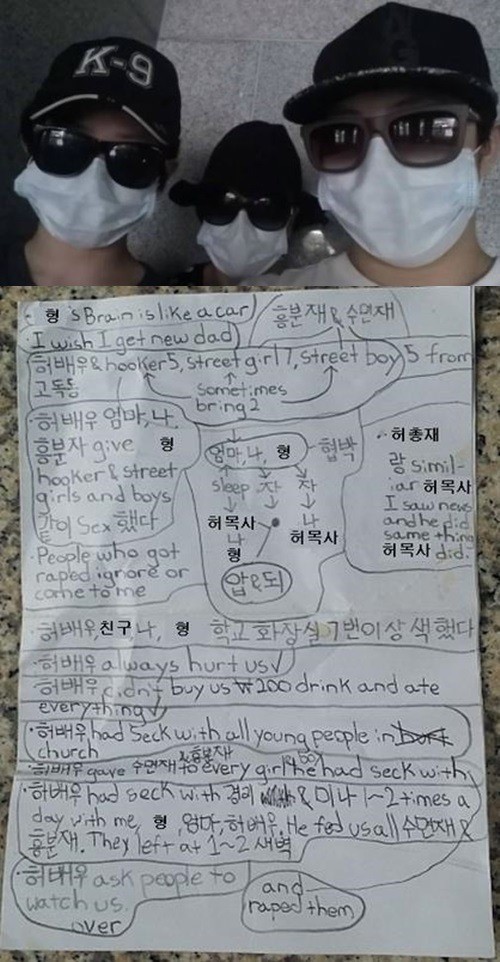 K-9
형's Brain is like a car
흥분재 & 수면재
·I wish I get new dad
허배우 & hooker 5, street girl 7, street boy 5 from
고독동
sometimes
bring 2
·허배우 엄마, 나,
흥분자 give 형
hooker & street
girls and boys
같이 sex 했다
·People who got
raped ignore or
come to me
엄마, 나, 형 협박
sleep 자 자
허목사 나
나 허목사
형
압&되
·허총재
랑 simil-
iar 허목사
I saw news
and he did
same thing
허목사 did.
·허배우, 친구, 나, 형 학교 화장실 7번이상 색했다
·허배우 always hurt us
·허배우 didn't buy us ₩200 drink and ate
everything
·허배우 had Seck with all young people in
church
& 흥분재
·허배우 gave 수면재 to every girl he had seck with
·허배우 had seck with & 미나 1~2 times a
day with me, 형, 엄마, 허배우. He fed us all 수면재 &
흥분재. They left at 1~2 새벽
·허배우 ask people to
watch us.
over
and
raped them